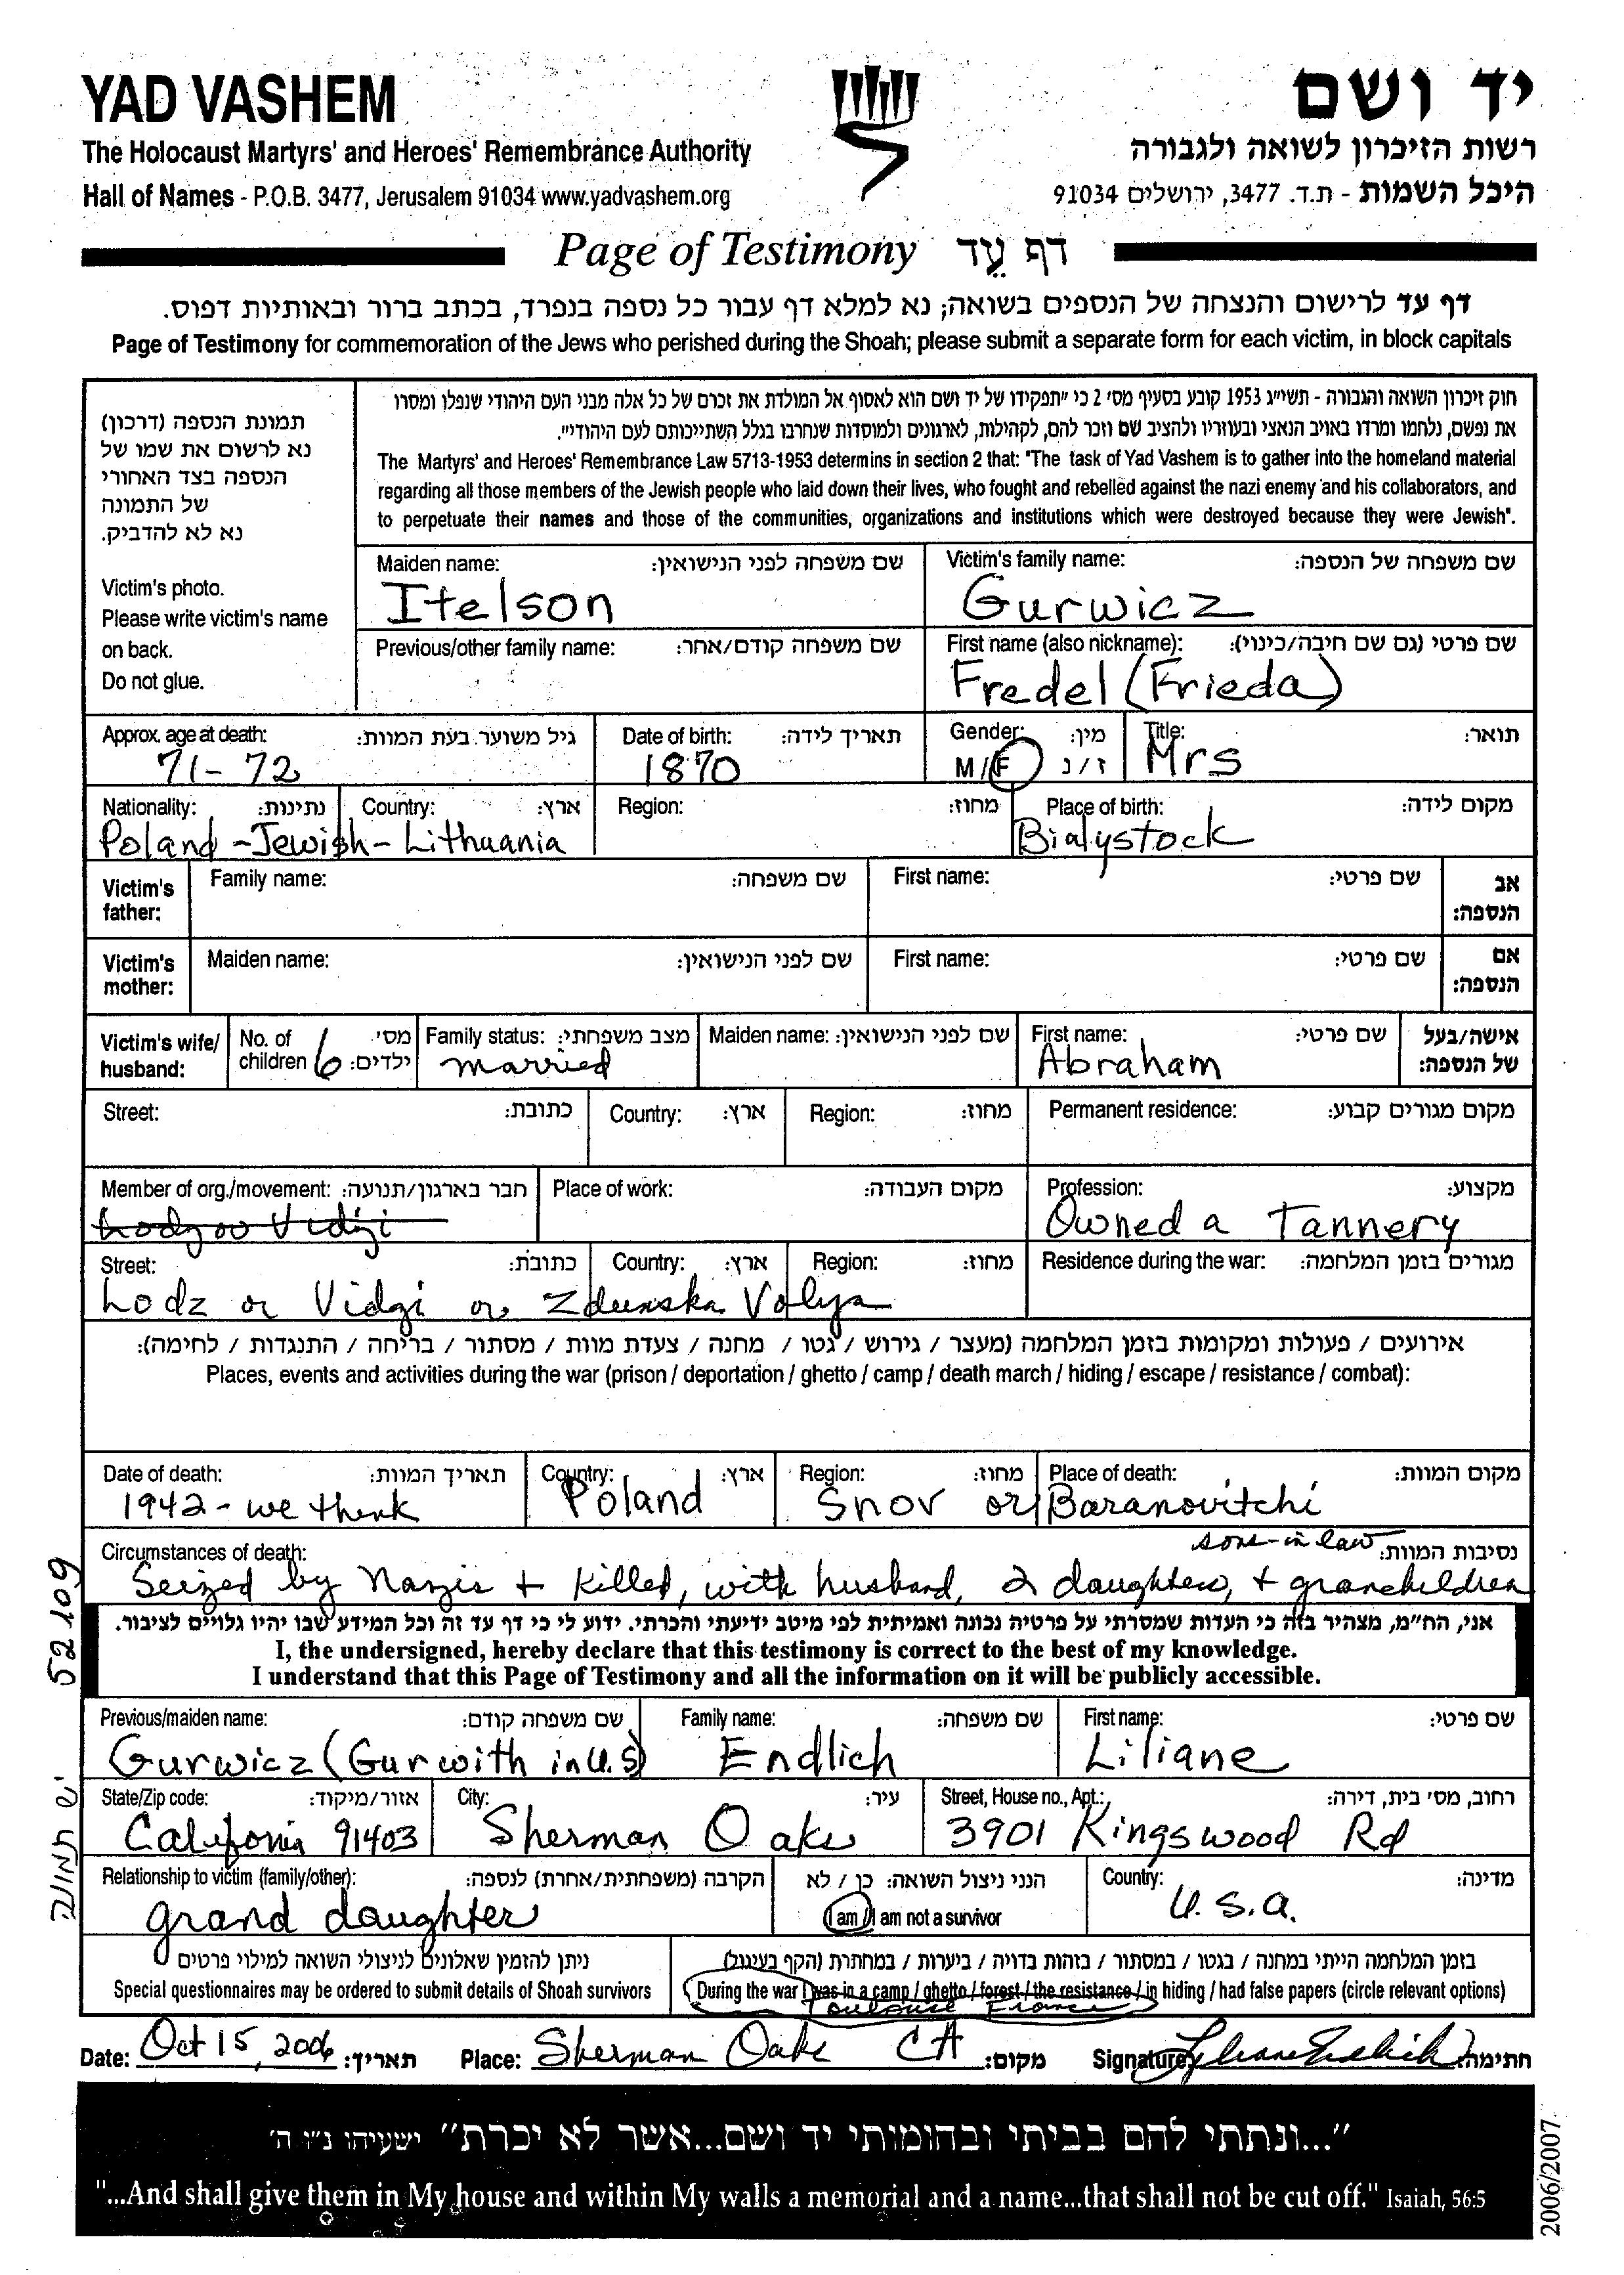 YAD VASHEM
יד ושם
The Holocaust Martyrs' and Heroes' Remembrance Authority
רשות הזיכרון לשואה ולגבורה
Hall of Names - P.O.B. 3477, Jerusalem 91034 www.yadvashem.org
היכל השמות - ת.ד. 3477, ירושלים 91034
Page of Testimony דף עֵד
דף עד לרישום והנצחה של הנספים בשואה; נא למלא דף עבור כל נספה בנפרד, בכתב ברור ובאותיות דפוס.
Page of Testimony for commemoration of the Jews who perished during the Shoah; please submit a separate form for each victim, in block capitals
תמונת הנספה (דרכון)
נא לרשום את שמו של
הנספה בצד האחורי
של התמונה
נא לא להדביק.
Victim's photo.
Please write victim's name
on back.
Do not glue.
חוק זיכרון השואה והגבורה - תשי״ג 1953 קובע בסעיף מס׳ 2 כי ״תפקידו של יד ושם הוא לאסוף אל המולדת את זכרם של כל אלה מבני העם היהודי שנפלו ומסרו
את נפשם, נלחמו ומרדו באויב הנאצי ובעוזריו ולהציב שם וזכר להם, לקהילות, לארגונים ולמוסדות שנחרבו בגלל השתייכותם לעם היהודי״.
The Martyrs' and Heroes' Remembrance Law 5713-1953 determins in section 2 that: "The task of Yad Vashem is to gather into the homeland material
regarding all those members of the Jewish people who laid down their lives, who fought and rebelled against the nazi enemy and his collaborators, and
to perpetuate their names and those of the communities, organizations and institutions which were destroyed because they were Jewish".
Maiden name: שם משפחה לפני הנישואין:
Itelson
Victim's family name: שם משפחה של הנספה:
Gurwicz
Previous/other family name: שם משפחה קודם/אחר:
First name (also nickname): שם פרטי (גם שם חיבה/כינוי):
Fredel (Frieda)
Approx. age at death: גיל משוער בעת המוות:
71-72
Date of birth: תאריך לידה:
1870
Gender: מין:
M/F ז/נ
Title: תואר:
Mrs
Nationality: נתינות: Country: ארץ: Region: מחוז: Place of birth: מקום לידה:
Poland - Jewish - Lithuania Bialystock
Victim's father: Family name: שם משפחה: First name: שם פרטי: אב הנספה:
Victim's mother: Maiden name: שם לפני הנישואין: First name: שם פרטי: אם הנספה:
Victim's wife/husband: No. of children 6 מס׳ ילדים: Family status: מצב משפחתי: married Maiden name: שם לפני הנישואין: First name: שם פרטי: Abraham אישה/בעל של הנספה:
Street: כתובת: Country: ארץ: Region: מחוז: Permanent residence: מקום מגורים קבוע:
Member of org./movement: חבר בארגון/תנועה: Place of work: מקום העבודה: Profession: מקצוע:
Lodz or Vidzi Owned a Tannery
Street: כתובת: Country: ארץ: Region: מחוז: Residence during the war: מגורים בזמן המלחמה:
Lodz or Vidzi or Zdunska Volya
אירועים / פעולות ומקומות בזמן המלחמה (מעצר / גירוש / גטו / מחנה / צעדת מוות / מסתור / בריחה / התנגדות / לחימה):
Places, events and activities during the war (prison / deportation / ghetto / camp / death march / hiding / escape / resistance / combat):
Date of death: תאריך המוות: Country: ארץ: Region: מחוז: Place of death: מקום המוות:
1942 - we think Poland Snov or Baranovitchi
Circumstances of death: sons-in law נסיבות המוות:
Seized by Nazis + killed, with husband, 2 daughters, + grandchildren
אני, הח״מ, מצהיר בזה כי העדות שמסרתי על פרטיה נכונה ואמיתית לפי מיטב ידיעתי והכרתי. ידוע לי כי דף עד זה וכל המידע שבו יהיו גלויים לציבור.
I, the undersigned, hereby declare that this testimony is correct to the best of my knowledge.
I understand that this Page of Testimony and all the information on it will be publicly accessible.
Previous/maiden name: שם משפחה קודם: Family name: שם משפחה: First name: שם פרטי:
Gurwicz (Gurwith in U.S) Endlich Liliane
State/Zip code: אזור/מיקוד: City: עיר: Street, House no., Apt.: רחוב, מס׳ בית, דירה:
California 91403 Sherman Oaks 3901 Kingswood Rd
Relationship to victim (family/other): הקרבה (משפחתית/אחרת) לנספה: הנני ניצול השואה: כן / לא Country: מדינה:
grand daughter I am / I am not a survivor U.S.A.
ניתן להזמין שאלונים לניצולי השואה למילוי פרטים
Special questionnaires may be ordered to submit details of Shoah survivors
בזמן המלחמה הייתי במחנה / בגטו / במסתור / בזהות בדויה / ביערות / במחתרת (הקף בעיגול)
During the war I was in a camp / ghetto / forest / the resistance / in hiding / had false papers (circle relevant options)
Toulouse France
Date: Oct 15, 2006 תאריך: Place: Sherman Oaks CA מקום: Signature Liliane Endlich חתימה:
52109
יש תמונה
"...ונתתי להם בביתי ובחומותי יד ושם...אשר לא יכרת" ישעיהו נ״ו ה׳
"...And shall give them in My house and within My walls a memorial and a name...that shall not be cut off." Isaiah, 56:5
2006/2007